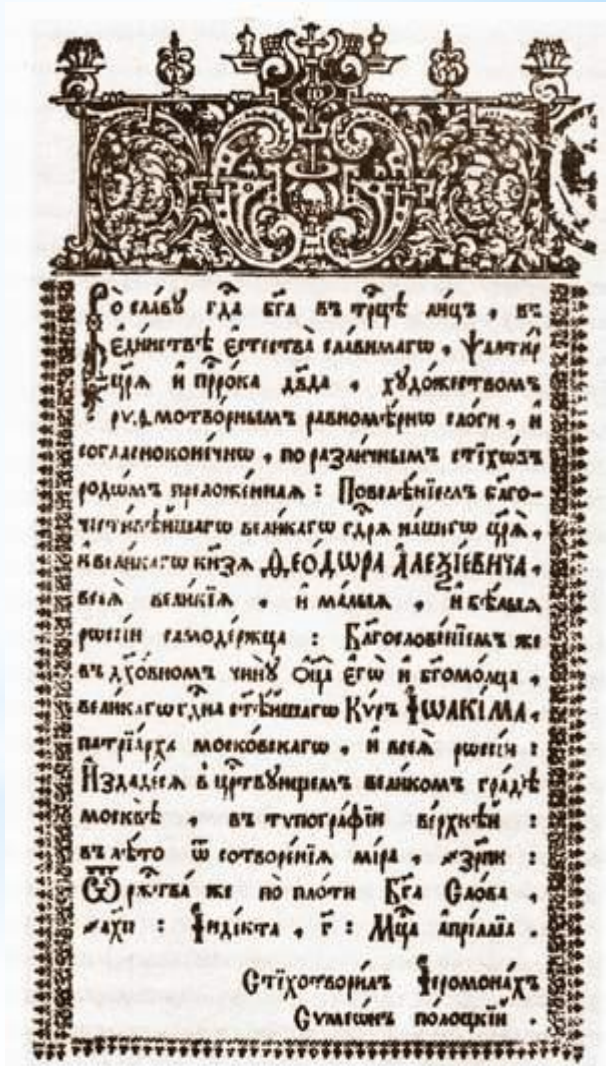 Во славу гд҇а бг҃а въ трⷪ҇цѣ лицъ, въ
Єди́нствѣ Єстества̀ славимагѡ, Ѱалти́рь
Цр҃ѧ̀ и҆ прⷪ҇ро́ка дв҃да, худо́жествомъ
мотво́рнымъ равномѣ́рнѡ слоги, и҆
согласноконе́чнѡ, по разли́чнымъ стїхѡ́въ
родѡ́мъ преложе́нная : Повелѣ́нїемъ бл҃го-
вели́кагѡ гдⷭ҇рѧ на́шегѡ цр҃ѧ̀,
и҆ вели́кагѡ кнѧ́зѧ ѲЕО́ДѠРА А҆ЛЕѮІ́ЕВИЧА,
всеѧ̀ вели́кїѧ, и҆ ма́лыѧ, и҆ бѣ́лыѧ
рѡссі́и самоде́ржца : Бл҃гослове́нїемъ же
въ дх҃о́вномъ чи́ну Ѻ҆ц҃а̀ Єгѡ̀ и҆ бг҃омо́лца,
вели́кагѡ гдⷭ҇на ст҃ѣ́йшагѡ Кѵ́ръ І҆ѠАКІ́МА,
патрїа́рха моско́вскагѡ, и҆ всеѧ̀ рѡссі́и :
И҆здаде́сѧ в црⷭ҇твующемъ вели́комъ гра́дѣ
москвѣ̀, въ тѵпогра́фїи ве́рхнѣй :
въ лѣ́то ѿ сотворе́нїѧ мі́ра, ҂зрпи :
Ѿ рж҇тва́ же по пло́ти Бг҃а Сло́ва,
҂ахп : І҆нді́кта, г҃ : Мцⷭ҇а а҆прі́ллїа
Стїхотвори́лъ І҆еромона́хъ
Сѵмеѡ́нъ по́лоцкїй.